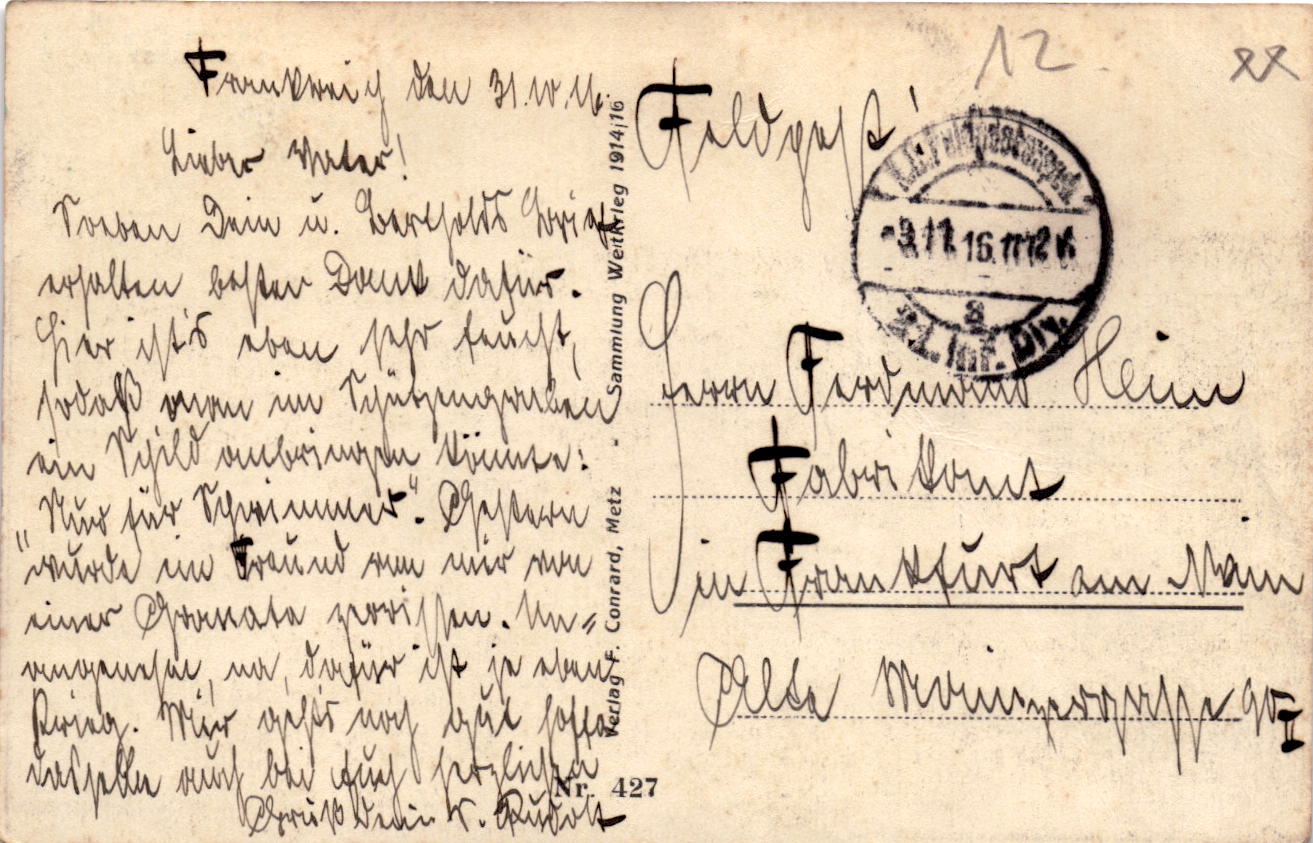 12
xx
Frankreich den 31.10.16.
Lieber Vater!
Soeben Dein u. Bertholds Brief
erhalten besten Dank dafür.
Hier ist's eben sehr feucht,
sodaß man im Schützengraben
ein Schild anbringen könnte:
„Nur für Schwimmer". Gestern
wurde ein Freund von mir von
einer Granate zerrissen. Un=
angenehm, na, dafür ist ja eben
Krieg. Mir geht's noch gut hoffe
dasselbe auch bei Euch herzlichen
Gruß Dein tr. Rudolf
Verlag F. Conrard, Metz - Sammlung Weltkrieg 1914/16
Nr. 427
Feldpost!
K.D. Feldpostexped.
-3.11.16. 11-12 V.
a
21. Inf. Div.
Herrn Ferdinand Heim
Fabrikant
in Frankfurt am Main
Alte Mainzergasse 90 II